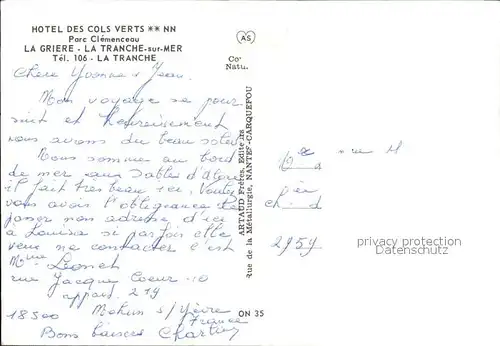 HOTEL DES COLS VERTS ** NN
Parc Clémenceau
LA GRIERE - LA TRANCHE-sur-MER
Tél. 106 - LA TRANCHE
AS
Co
Natu.
Chere Yvonne & Jean.
Mon voyage se pour
suit et heureusement
nous avons du beau soleil
Nous somme au bord
de mer aux Sables d'Olone
il fait tres beau ici. Voulez
vous avoir l'obligeance de
passer mon adresse d'ici
a Louisa si par fois elle
veux me contacter c'est
Mme Leonet
rue Jacque Coeur 10
appart. 219
18500 Mehun s/ Yèvre
France
Bons baisers
ARTAUD Frères, Editeurs
Rue de la Métallurgie, NANTES-CARQUEFOU
ON 35
2959
privacy protection
Datenschutz